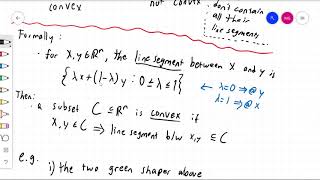 convex
not convex
don't contain
all their
line segments
Formally:
· for x, y ∈ ℝⁿ, the line segment between x and y is
{ λx + (1-λ) y : 0 ≤ λ ≤ 1 }
← λ=0 ⇒ @ y
λ=1 ⇒ @ x
Then:
· a subset C ⊆ ℝⁿ is convex if
x, y ∈ C ⇒ line segment b/w x,y ⊆ C
e.g.
i) the two green shapes above